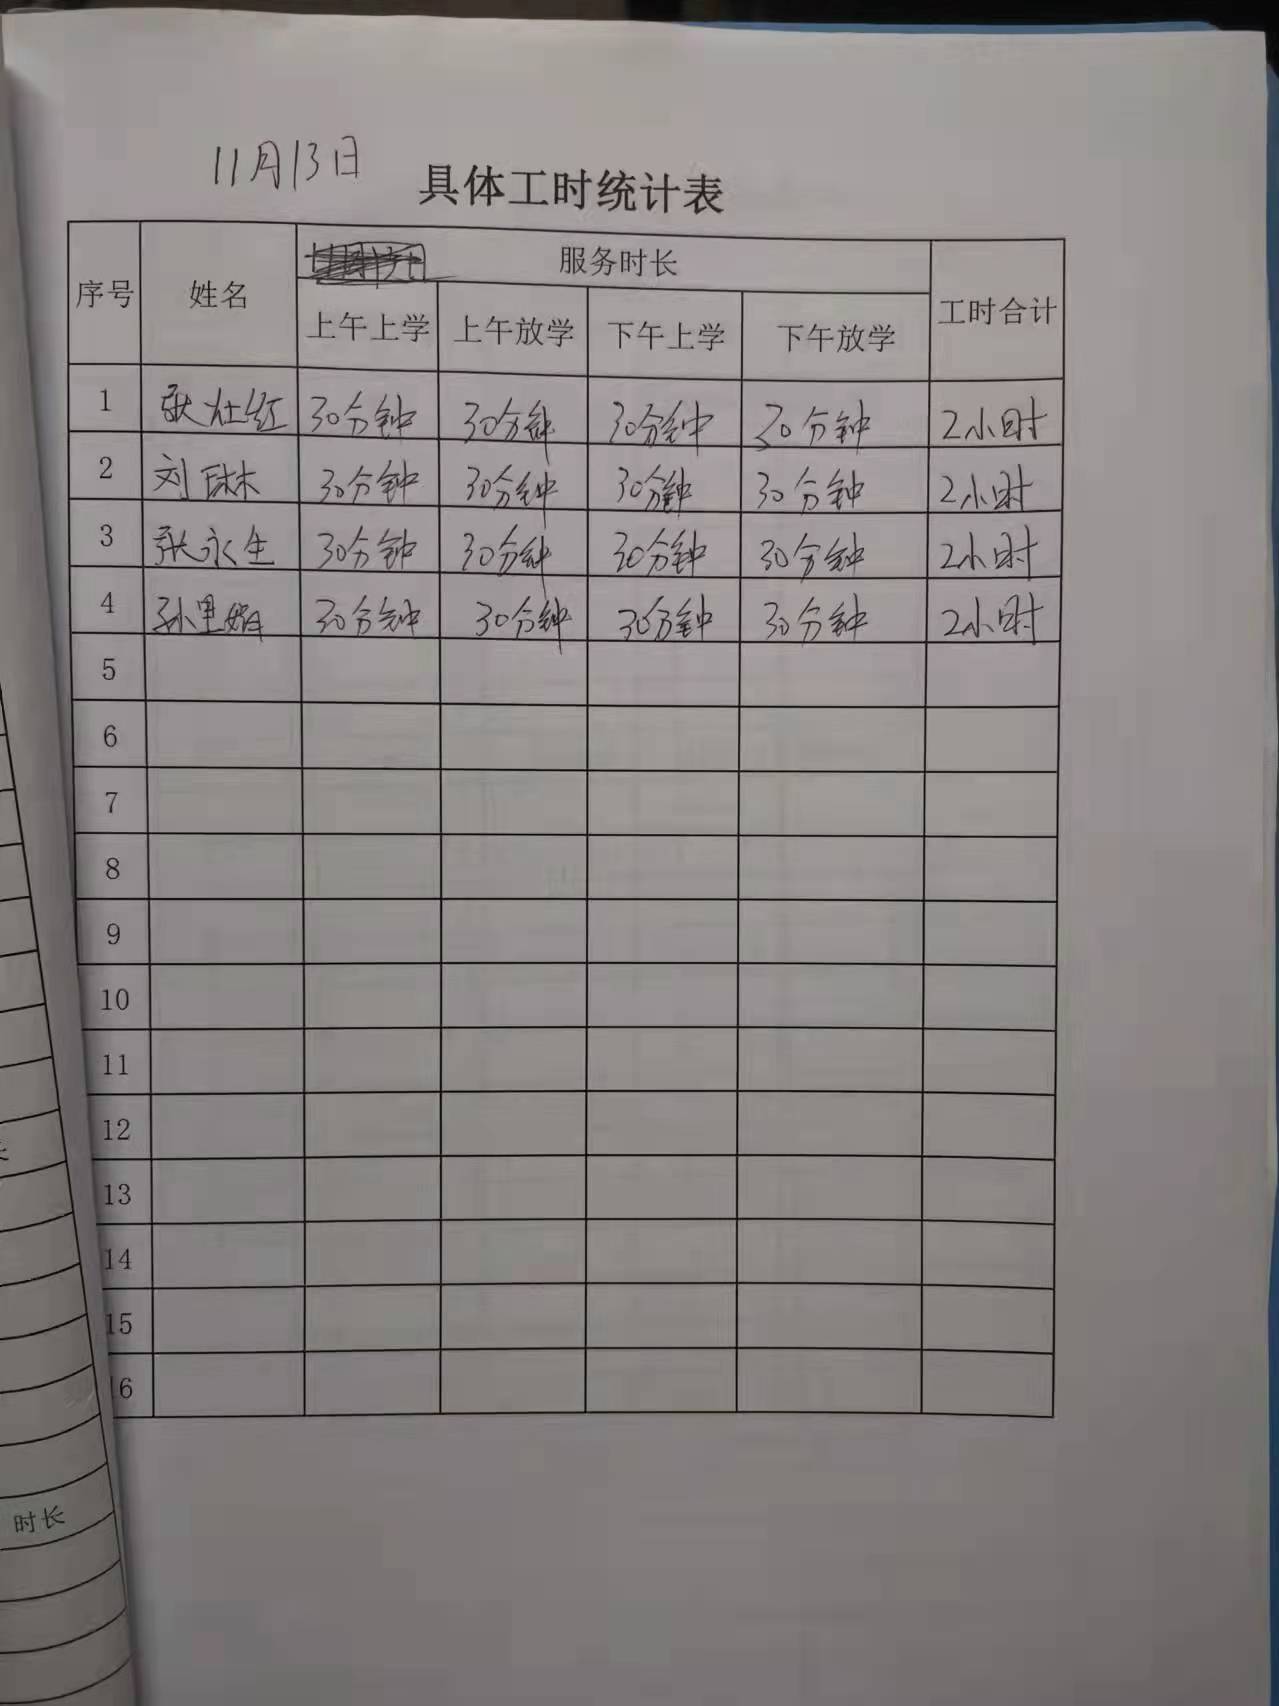 11月13日
具体工时统计表
序号 姓名 服务时长 工时合计
上午上学 上午放学 下午上学 下午放学
1 30分钟 30分钟 30分钟 30分钟 2小时
2 刘琳 30分钟 30分钟 30分钟 30分钟 2小时
3 张永生 30分钟 30分钟 30分钟 30分钟 2小时
4 30分钟 30分钟 30分钟 30分钟 2小时
5
6
7
8
9
10
11
12
13
14
15
16
时长